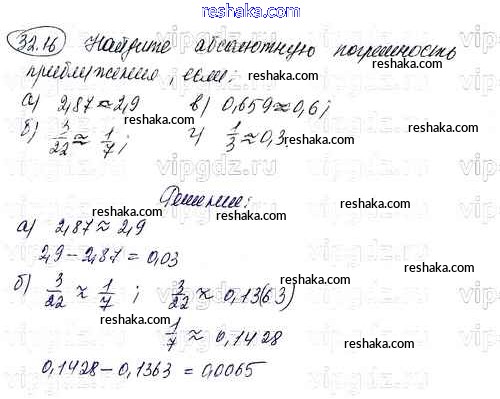 reshaka.com
32.16 Найдите абсолютную погрешность
приближения, если:
а) 2,87 ≈ 2,9 в) 0,659 ≈ 0,6;
б) 3/22 ≈ 1/7; г) 1/3 ≈ 0,3.
Решение:
а) 2,87 ≈ 2,9
2,9 - 2,87 = 0,03
б) 3/22 ≈ 1/7 ; 3/22 ≈ 0,13(63)
1/7 ≈ 0,1428
0,1428 - 0,1363 = 0,0065
reshaka.com
reshaka.com
reshaka.com
reshaka.com
reshaka.com
reshaka.com
reshaka.com
reshaka.com
reshaka.com
reshaka.com
reshaka.com
vipgdz.ru
vipgdz.ru
vipgdz.ru